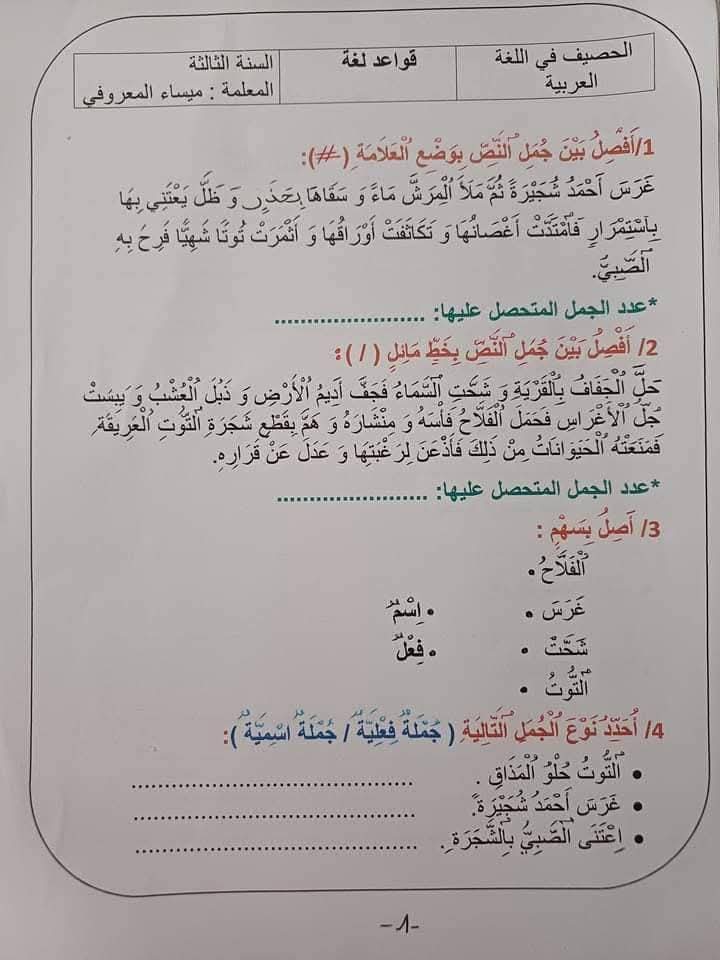 الحصيف في اللغة العربية
قواعد لغة
السنة الثالثة
المعلمة : ميساء المعروفي
1/أَفْصِلُ بَيْنَ جُمَلِ ٱلنَّصِّ بِوَضْعِ ٱلْعَلَامَةِ (#):
غَرَسَ أَحْمَدُ شُجَيْرَةً ثُمَّ مَلَأَ الْمِرَشَّ مَاءً وَ سَقَاهَا بِحَذَرٍ وَ ظَلَّ يَعْتَنِي بِهَا
بِٱسْتِمْرَارٍ فَٱمْتَدَّتْ أَغْصَانُهَا وَ تَكَاثَفَتْ أَوْرَاقُهَا وَ أَثْمَرَتْ تُوتًا شَهِيًّا فَرِحَ بِهِ
ٱلصَّبِيُّ.
*عدد الجمل المتحصل عليها: ......................
2/ أَفْصِلُ بَيْنَ جُمَلِ ٱلنَّصِّ بِخَطٍّ مَائِلٍ ( / ) :
حَلَّ ٱلْجَفَافُ بِٱلْقَرْيَةِ وَ شَحَّتِ ٱلسَّمَاءُ فَجَفَّ أَدِيمُ ٱلْأَرْضِ وَ ذَبُلَ ٱلْعُشْبُ وَ يَبِسَتْ
جُلُّ ٱلْأَغْرَاسِ فَحَمَلَ ٱلْفَلَّاحُ فَأْسَهُ وَ مِنْشَارَهُ وَ هَمَّ بِقَطْعِ شَجَرَةِ ٱلتُّوتِ ٱلْعَرِيقَةِ
فَمَنَعَتْهُ ٱلْحَيَوَانَاتُ مِنْ ذَلِكَ فَأَذْعَنَ لِرَغْبَتِهَا وَ عَدَلَ عَنْ قَرَارِهِ.
*عدد الجمل المتحصل عليها: ......................
3/ أَصِلُ بِسَهْمٍ :
ٱلْفَلَّاحُ •
غَرَسَ • • اِسْمٌ
شَحَّتْ • • فِعْلٌ
ٱلتُّوتُ •
4/ أُحَدِّدُ نَوْعَ ٱلْجُمَلِ ٱلتَّالِيَةِ ( جُمْلَةٌ فِعْلِيَّةٌ / جُمْلَةٌ اسْمِيَّةٌ ):
• ٱلتُّوتُ حُلْوُ ٱلْمَذَاقِ . ........................................
• غَرَسَ أَحْمَدُ شُجَيْرَةً. ........................................
• اِعْتَنَى ٱلصَّبِيُّ بِٱلشَّجَرَةِ . ........................................
-1-